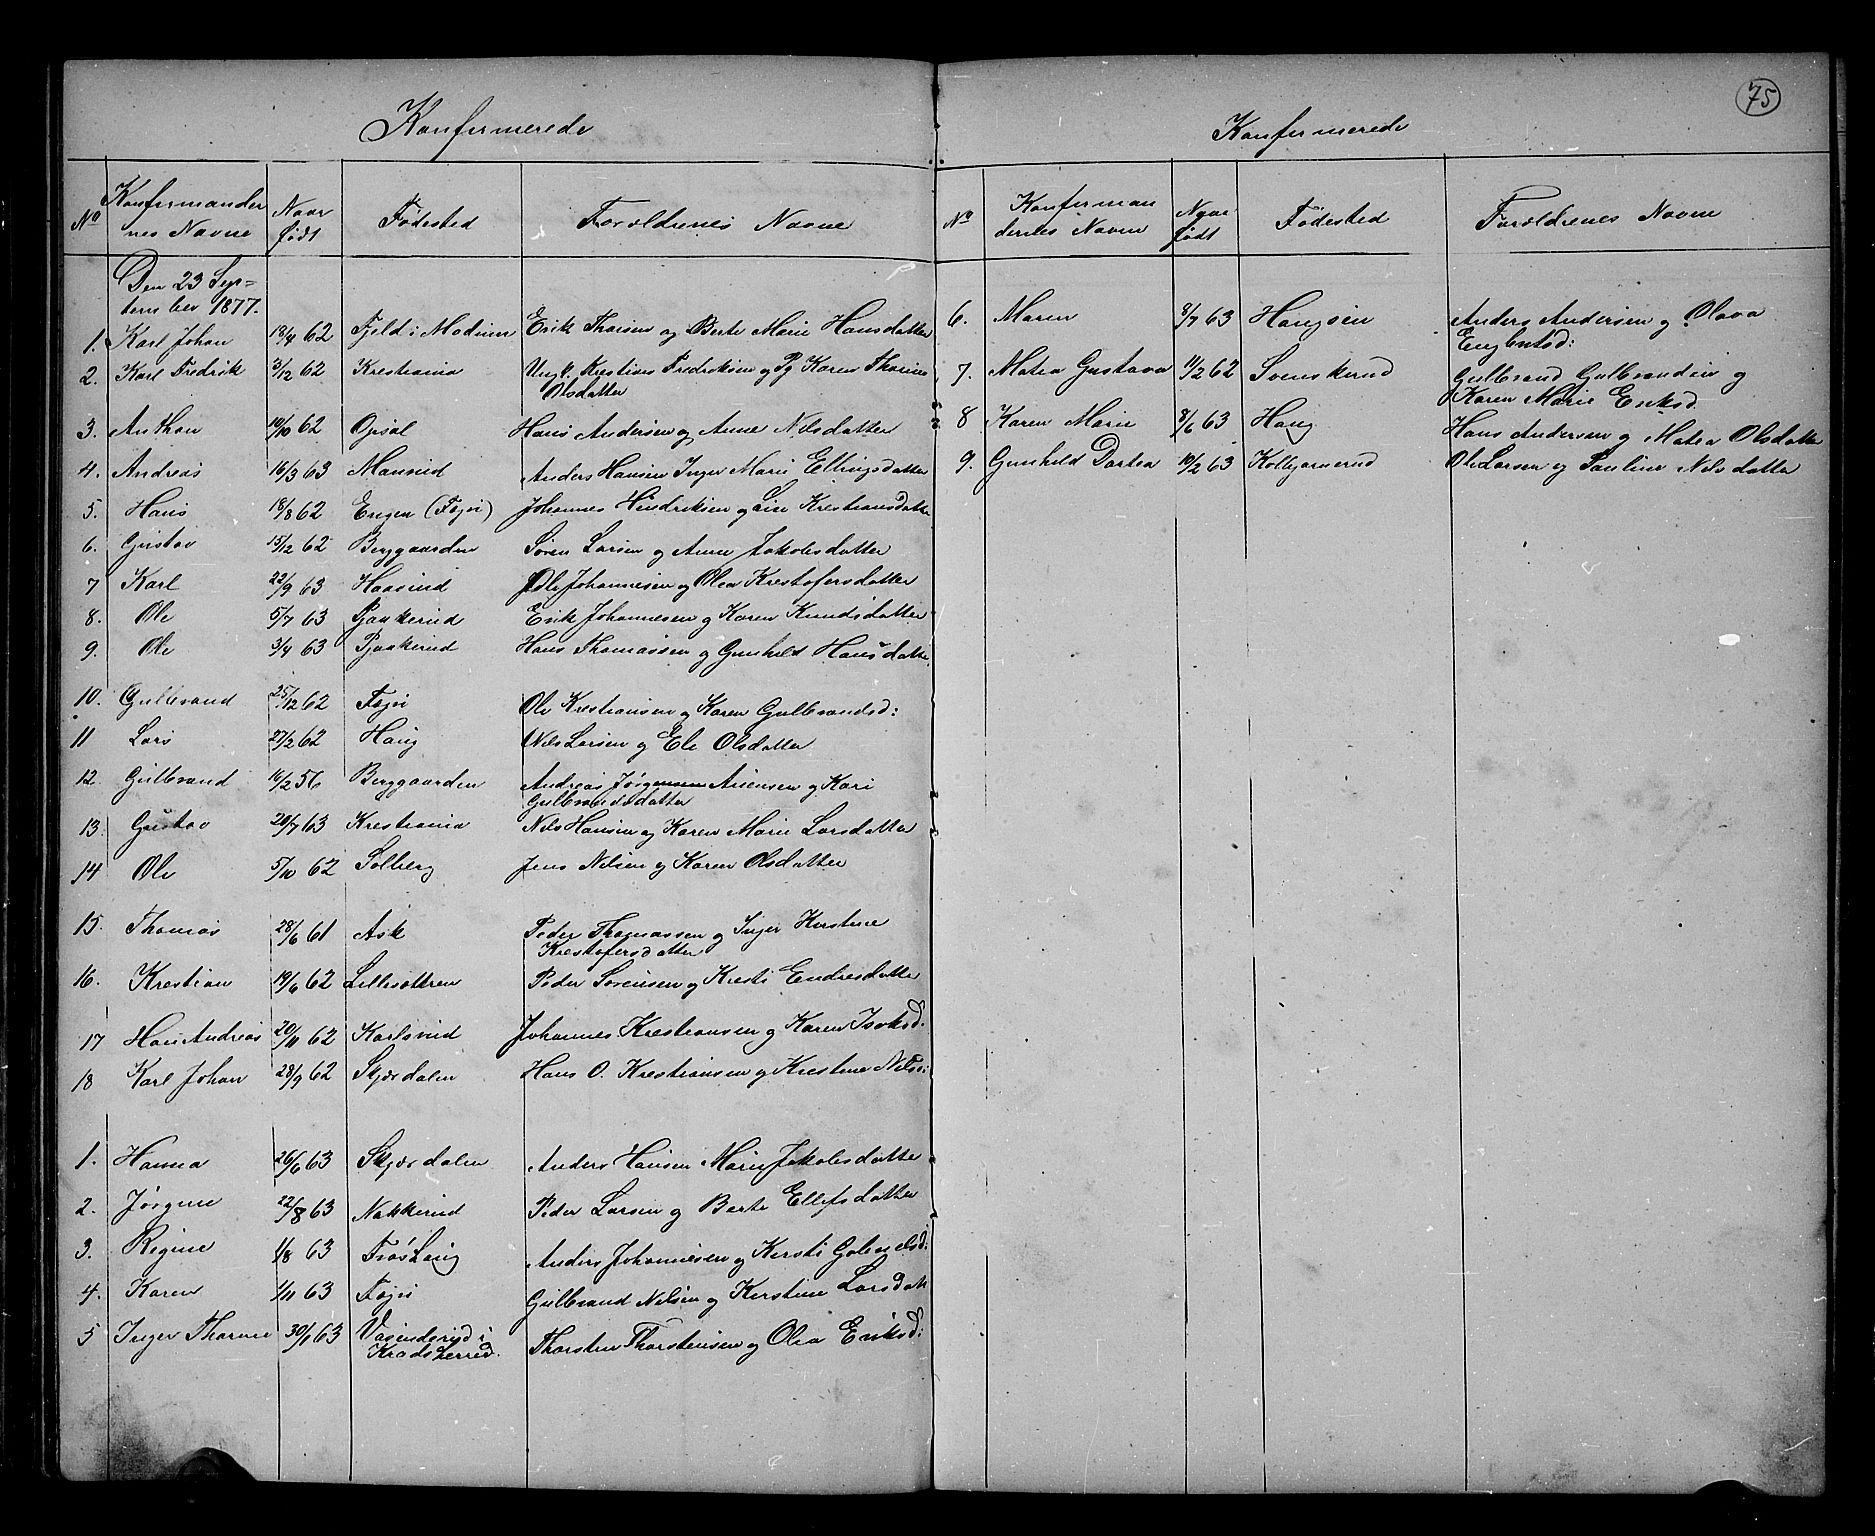 75
Konfermerede
No Konfermander Naar Fødested Forældrenes Navne
nes Navne født
Den 23 Sep=
tember 1877.
1. Karl Johan 18/4 62 Fjeld i Modum Erik Thorsen og Berte Marie Hansdatter
2. Karl Fredrik 3/12 62 Krestiania Ungk. Kristian Fredriksen og Pg Karen Thorine
Olsdatter
3. Anthon 10/10 62 Opsal Hans Andersen og Anne Nilsdatter
4. Andreas 16/3 63 Anders Hansen Inger Marie Ellingsdatter
5. Hans 18/8 62 Engen (Fegri) Johannes Hendriksen og Lise Krestiansdatter
6. Gustav 15/12 62 Berggaarden Søren Larsen og Anne Jakobsdatter
7 Karl 22/9 63 Haasind Ole Johannesen og Olea Krestofersdatter
8. Ole 5/7 63 Pjaakerud Erik Johannesen og Karen Knudsdatter
9. Ole 3/4 63 Pjaakerud Hans Thomassen og Gunhild Hansdatter
10. Gulbrand 25/12 62 Fegri Ole Krestiansen og Karen Gulbrandsd:
11 Lars 27/2 62 Haug Nils Larsen og Eli Olsdatter
12. Gulbrand 16/2 56 Berggaarden Andreas Jørgensen Anensen og Kari
Gulbrandsdatter
13. Gustav 20/7 63 Krestiania Nils Hansen og Karen Marie Larsdatter
14 Ole 5/10 62 Solberg Jens Nilsen og Karen Olsdatter
15. Thomas 28/6 61 Ask Peder Thomassen og Inger Kirstine
Krestofersdatter
16. Krestian 19/6 62 Lillesætren Peder Sørensen og Kresti Endresdatter
17 Hans Andreas 20/11 62 Karlsrud Johannes Krestiansen og Karen Isaksd.
18 Karl Johan 28/9 62 Skjærdalen Hans O. Krestiansen og Krestine Nilsd:
1. Hanna 26/6 63 Skjærdalen Anders Hansen Marie Jakobsdatter
2. Jørgine 22/8 63 Nakkerud Peder Larsen og Berte Ellefsdatter
3. Regine 1/8 63 Frøshaug Anders Johannesen og Kersti
4. Karen 1/11 63 Fegri Gulbrand Nilsen og Kerstine Larsdatt
5 Inger Thorine 30/1 63 Vasenderud i Thorsten Thorstensen og Olea Eriksd:
Krødsherred.
Konfermerede
No Konferman Naar Fødested Forældrenes Navne
dernes Navne født
6. Maren 8/7 63 Haugsen Anders Andersen og Olava
Engbretsd:
7. Matea Gustava 11/2 62 Svenskerud Gulbrand Gulbrandsen og
Karen Marie Eriksd.
8 Karen Marie 8/6 63 Haug Hans Andersen og Matea Olsdatter
9. Gunhild Dortea 10/2 63 Kolbjørnrud Ole Larsen og Pauline Nilsdatter